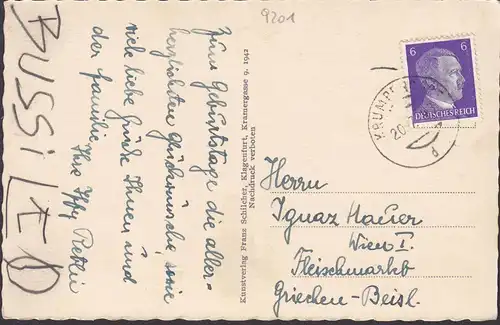 9201
Zum Geburtstage die aller-
herzlichsten Glückwünsche, sowie
viele liebe Grüße Ihnen und
der Familie
Ihre
BUSSI LEO
Kunstverlag Franz Schilcher, Klagenfurt, Kramergasse 9. 1942
Nachdruck verboten
6 6
DEUTSCHES REICH
KRUMP
20.
d
Herrn
Ignaz Hauer
Wien I.
Fleischmarkt
Griechen-Beisl.